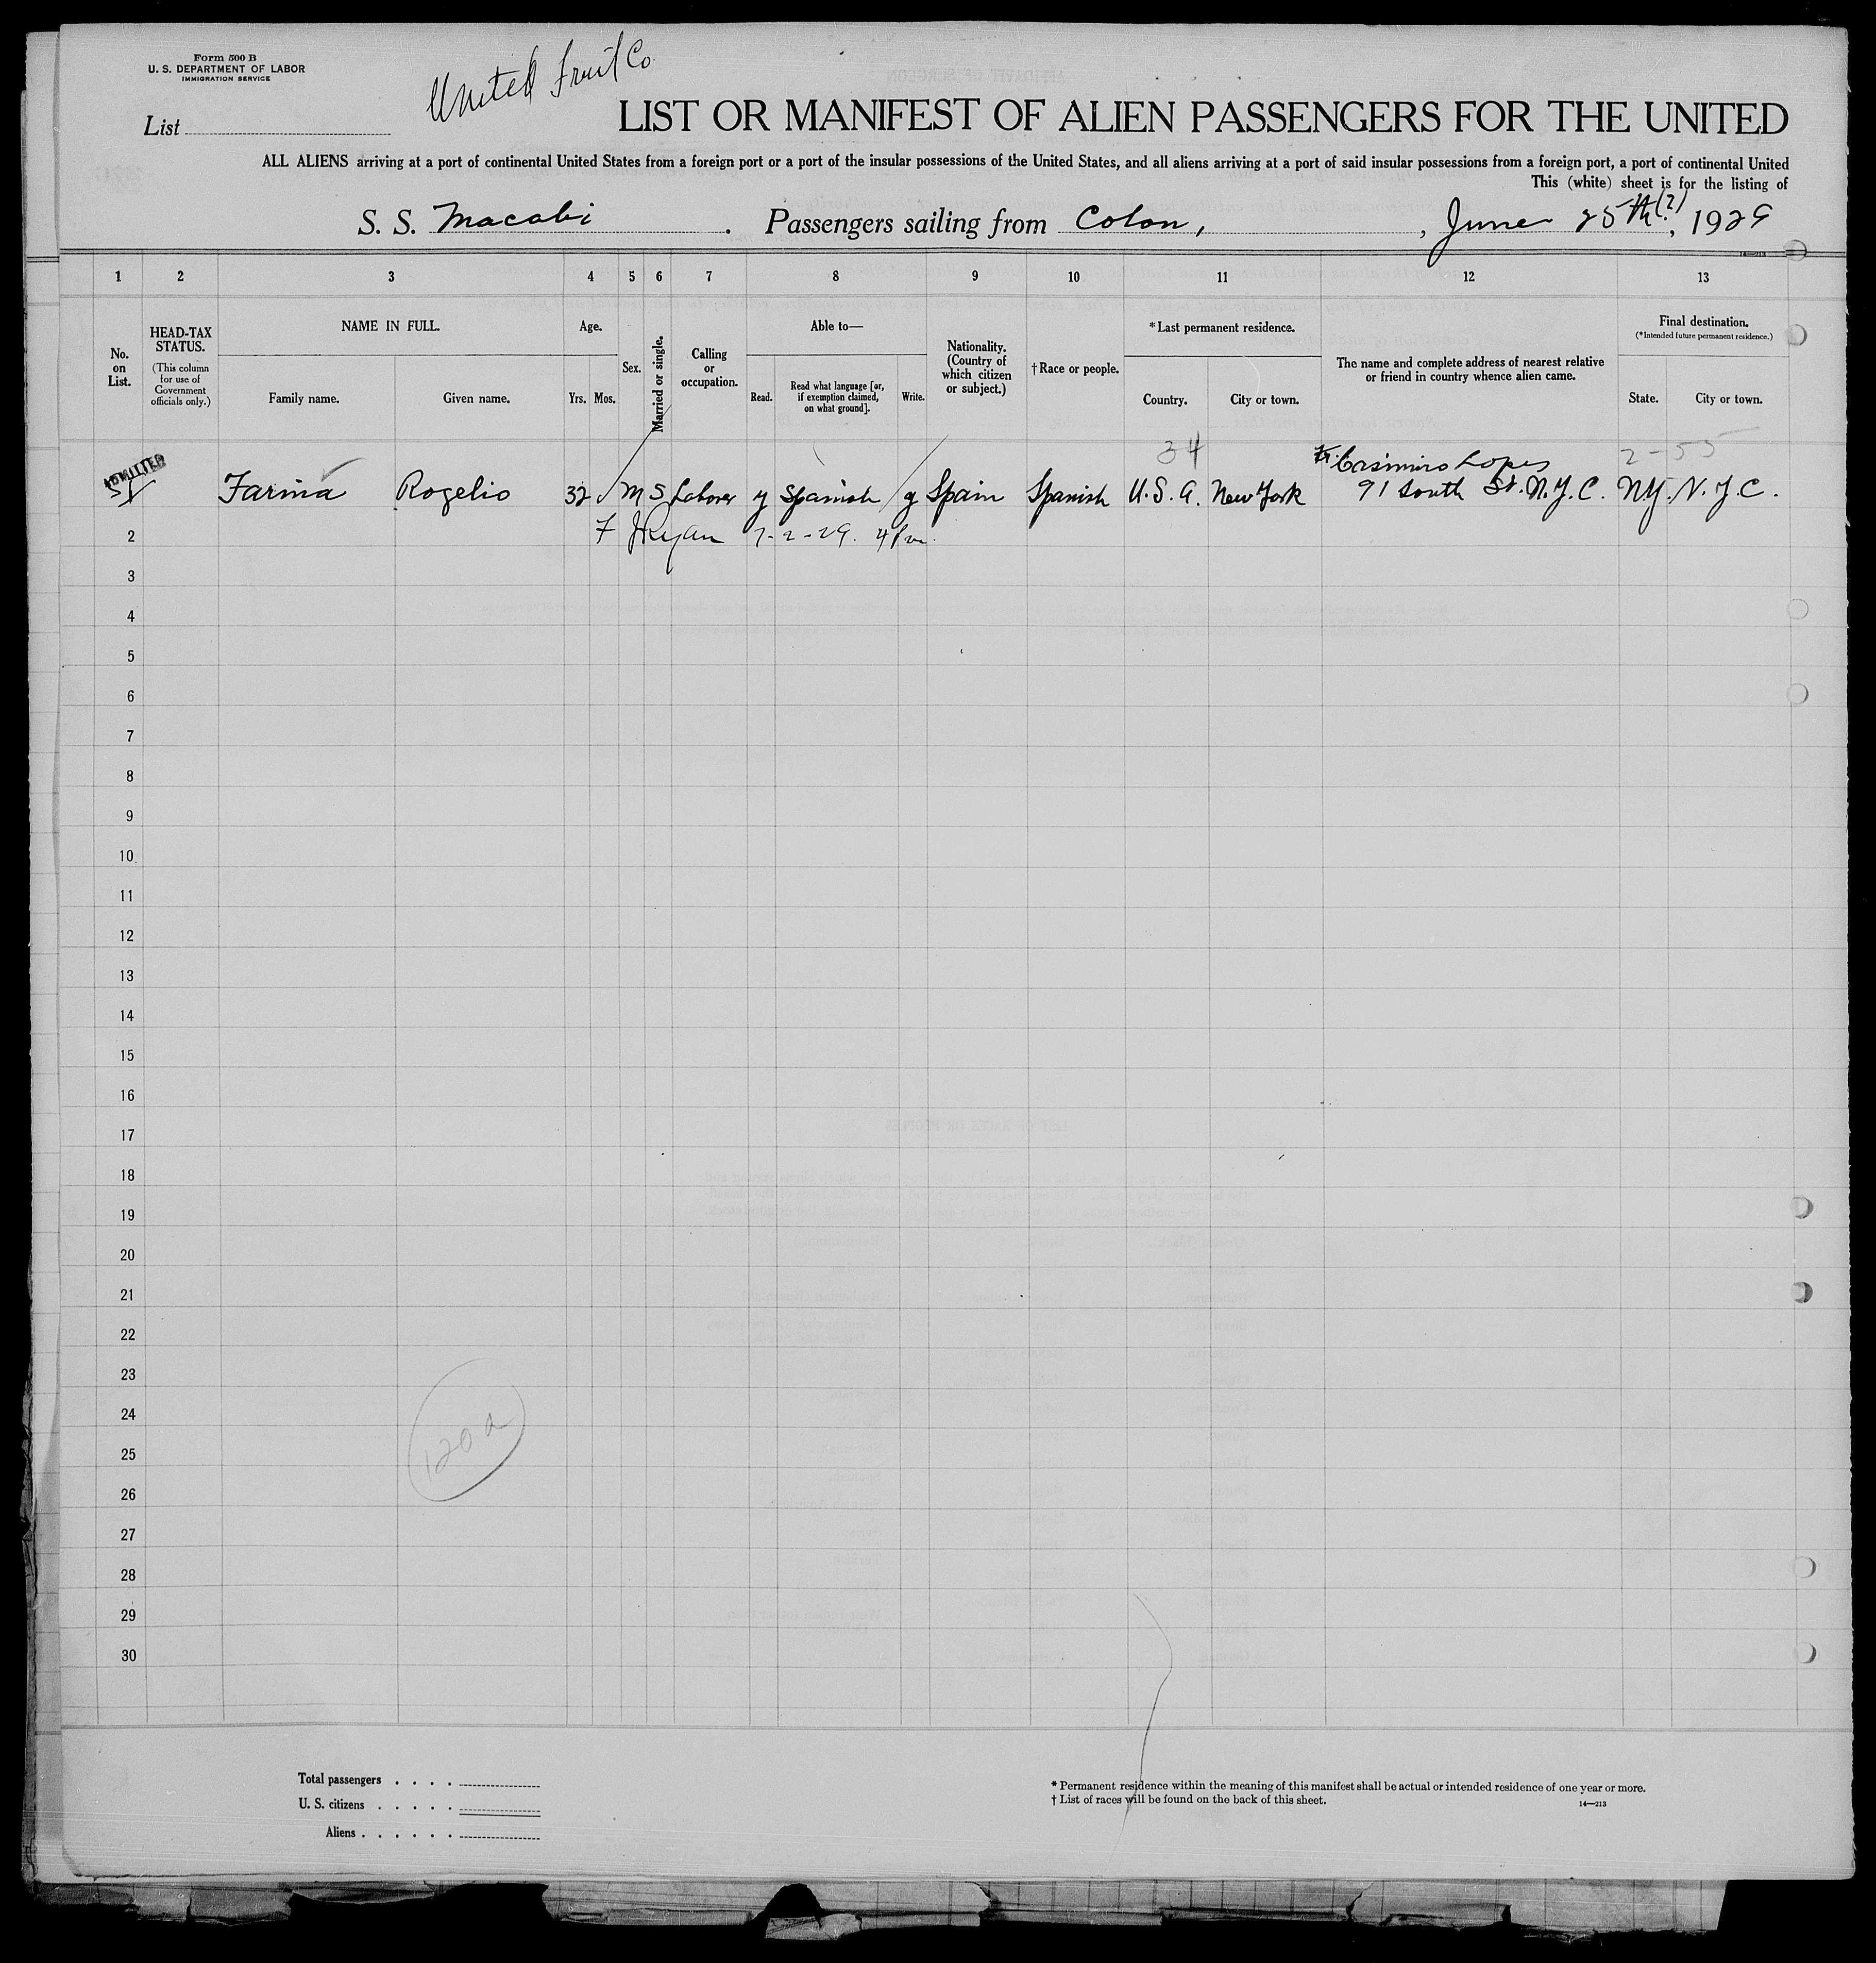 Form 500 B
U. S. DEPARTMENT OF LABOR
IMMIGRATION SERVICE
United Fruit Co
List
LIST OR MANIFEST OF ALIEN PASSENGERS FOR THE UNITED
ALL ALIENS arriving at a port of continental United States from a foreign port or a port of the insular possessions of the United States, and all aliens arriving at a port of said insular possessions from a foreign port, a port of continental United
This (white) sheet is for the listing of
S. S. Macabi . Passengers sailing from Colon, , June 25th(?), 1929
14—213
1 2 3 4 5 6 7 8 9 10 11 12 13
No. on List.
HEAD-TAX STATUS.
(This column for use of Government officials only.)
NAME IN FULL.
Family name. Given name.
Age.
Yrs. Mos.
Sex.
Married or single.
Calling or occupation.
Able to—
Read. Read what language [or, if exemption claimed, on what ground]. Write.
Nationality. (Country of which citizen or subject.)
† Race or people.
* Last permanent residence.
Country. City or town.
The name and complete address of nearest relative or friend in country whence alien came.
Final destination.
(*Intended future permanent residence.)
State. City or town.
34 2-55
ADMITTED
Fr. Casimiro Lopes
Farina Rogelio 32 M S Laborer y Spanish y Spain Spanish U.S.A. New York 91 South St. N.Y.C. N.Y. N.Y.C.
F J Ryan 7-2-29. 4 Pm.
2
3
4
5
6
7
8
9
10
11
12
13
14
15
16
17
18
19
20
21
22
23
24
25
26
27
28
29
30
120 a
Total passengers . . . .
U. S. citizens . . . . .
Aliens . . . . . .
* Permanent residence within the meaning of this manifest shall be actual or intended residence of one year or more.
† List of races will be found on the back of this sheet.
14—213